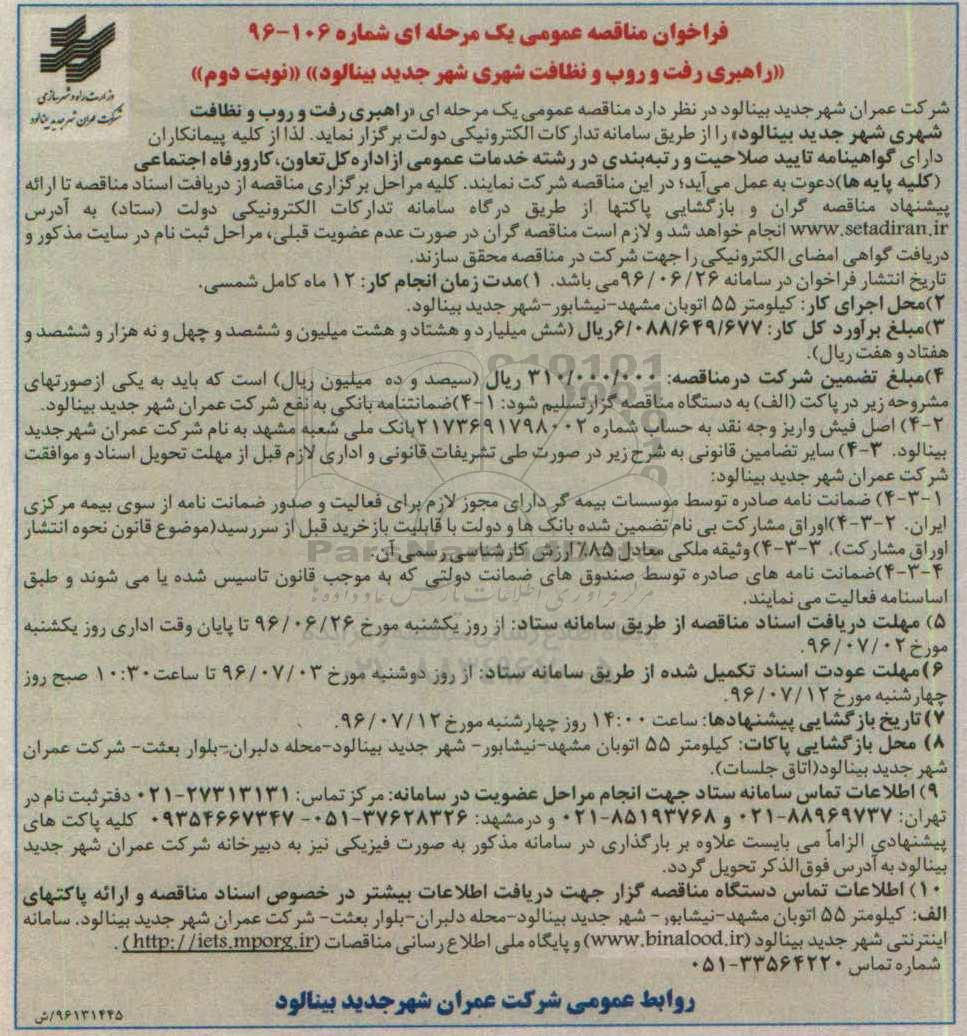 فراخوان مناقصه عمومی یک مرحله ای شماره ۱۰۶-۹۶
«راهبری رفت و روب و نظافت شهری شهر جدید بینالود» «نوبت دوم»
وزارت راه و شهرسازی
شرکت عمران شهر جدید بینالود
شرکت عمران شهرجدید بینالود در نظر دارد مناقصه عمومی یک مرحله ای «راهبری رفت و روب و نظافت
شهری شهر جدید بینالود» را از طریق سامانه تدارکات الکترونیکی دولت برگزار نماید. لذا از کلیه پیمانکاران
دارای گواهینامه تایید صلاحیت و رتبه‌بندی در رشته خدمات عمومی از اداره کل تعاون، کار و رفاه اجتماعی
(کلیه پایه ها) دعوت به عمل می‌آید؛ در این مناقصه شرکت نمایند. کلیه مراحل برگزاری مناقصه از دریافت اسناد مناقصه تا ارائه
پیشنهاد مناقصه گران و بازگشایی پاکتها از طریق درگاه سامانه تدارکات الکترونیکی دولت (ستاد) به آدرس
www.setadiran.ir انجام خواهد شد و لازم است مناقصه گران در صورت عدم عضویت قبلی، مراحل ثبت نام در سایت مذکور و
دریافت گواهی امضای الکترونیکی را جهت شرکت در مناقصه محقق سازند.
تاریخ انتشار فراخوان در سامانه ۹۶/۰۶/۲۶ می باشد. ۱) مدت زمان انجام کار: ۱۲ ماه کامل شمسی.
۲) محل اجرای کار: کیلومتر ۵۵ اتوبان مشهد-نیشابور-شهر جدید بینالود.
۳) مبلغ برآورد کل کار: ۶/۰۸۸/۶۴۹/۶۷۷ ریال (شش میلیارد و هشتاد و هشت میلیون و ششصد و چهل و نه هزار و ششصد و
هفتاد و هفت ریال).
۴) مبلغ تضمین شرکت در مناقصه: ۳۱۰/۰۰۰/۰۰۰ ریال (سیصد و ده میلیون ریال) است که باید به یکی از صورتهای
مشروحه زیر در پاکت (الف) به دستگاه مناقصه گزار تسلیم شود: ۴-۱) ضمانتنامه بانکی به نفع شرکت عمران شهر جدید بینالود.
۴-۲) اصل فیش واریز وجه نقد به حساب شماره ۲۱۷۳۶۹۱۷۹۸۰۰۲ بانک ملی شعبه مشهد به نام شرکت عمران شهرجدید
بینالود. ۴-۳) سایر تضامین قانونی به شرح زیر در صورت طی تشریفات قانونی و اداری لازم قبل از مهلت تحویل اسناد و موافقت
شرکت عمران شهر جدید بینالود:
۴-۳-۱) ضمانت نامه صادره توسط موسسات بیمه گر دارای مجوز لازم برای فعالیت و صدور ضمانت نامه از سوی بیمه مرکزی
ایران. ۴-۳-۲) اوراق مشارکت بی نام تضمین شده بانک ها و دولت با قابلیت بازخرید قبل از سررسید (موضوع قانون نحوه انتشار
اوراق مشارکت). ۴-۳-۳) وثیقه ملکی معادل ۸۵٪ ارزش کارشناسی رسمی آن.
۴-۳-۴) ضمانت نامه های صادره توسط صندوق های ضمانت دولتی که به موجب قانون تاسیس شده یا می شوند و طبق
اساسنامه فعالیت می نمایند.
۵) مهلت دریافت اسناد مناقصه از طریق سامانه ستاد: از روز یکشنبه مورخ ۹۶/۰۶/۲۶ تا پایان وقت اداری روز یکشنبه
مورخ ۹۶/۰۷/۰۲.
۶) مهلت عودت اسناد تکمیل شده از طریق سامانه ستاد: از روز دوشنبه مورخ ۹۶/۰۷/۰۳ تا ساعت ۱۰:۳۰ صبح روز
چهارشنبه مورخ ۹۶/۰۷/۱۲.
۷) تاریخ بازگشایی پیشنهادها: ساعت ۱۴:۰۰ روز چهارشنبه مورخ ۹۶/۰۷/۱۲.
۸) محل بازگشایی پاکات: کیلومتر ۵۵ اتوبان مشهد-نیشابور- شهر جدید بینالود-محله دلبران-بلوار بعثت- شرکت عمران
شهر جدید بینالود (اتاق جلسات).
۹) اطلاعات تماس سامانه ستاد جهت انجام مراحل عضویت در سامانه: مرکز تماس: ۲۷۳۱۳۱۳۱-۰۲۱ دفتر ثبت نام در
تهران: ۸۸۹۶۹۷۳۷-۰۲۱ و ۸۵۱۹۳۷۶۸-۰۲۱ و در مشهد: ۳۷۶۲۸۳۲۶-۰۵۱ - ۰۹۳۵۴۶۶۷۳۴۷ کلیه پاکت های
پیشنهادی الزاماً می بایست علاوه بر بارگذاری در سامانه مذکور به صورت فیزیکی نیز به دبیرخانه شرکت عمران شهر جدید
بینالود به آدرس فوق‌الذکر تحویل گردد.
۱۰) اطلاعات تماس دستگاه مناقصه گزار جهت دریافت اطلاعات بیشتر در خصوص اسناد مناقصه و ارائه پاکتهای
الف: کیلومتر ۵۵ اتوبان مشهد-نیشابور - شهر جدید بینالود-محله دلبران-بلوار بعثت- شرکت عمران شهر جدید بینالود. سامانه
اینترنتی شهر جدید بینالود (www.binalood.ir) و پایگاه ملی اطلاع رسانی مناقصات (http://iets.mporg.ir).
شماره تماس ۳۳۵۶۴۲۲۰-۰۵۱
روابط عمومی شرکت عمران شهرجدید بینالود
۹۶۱۳۱۴۴۵/ش